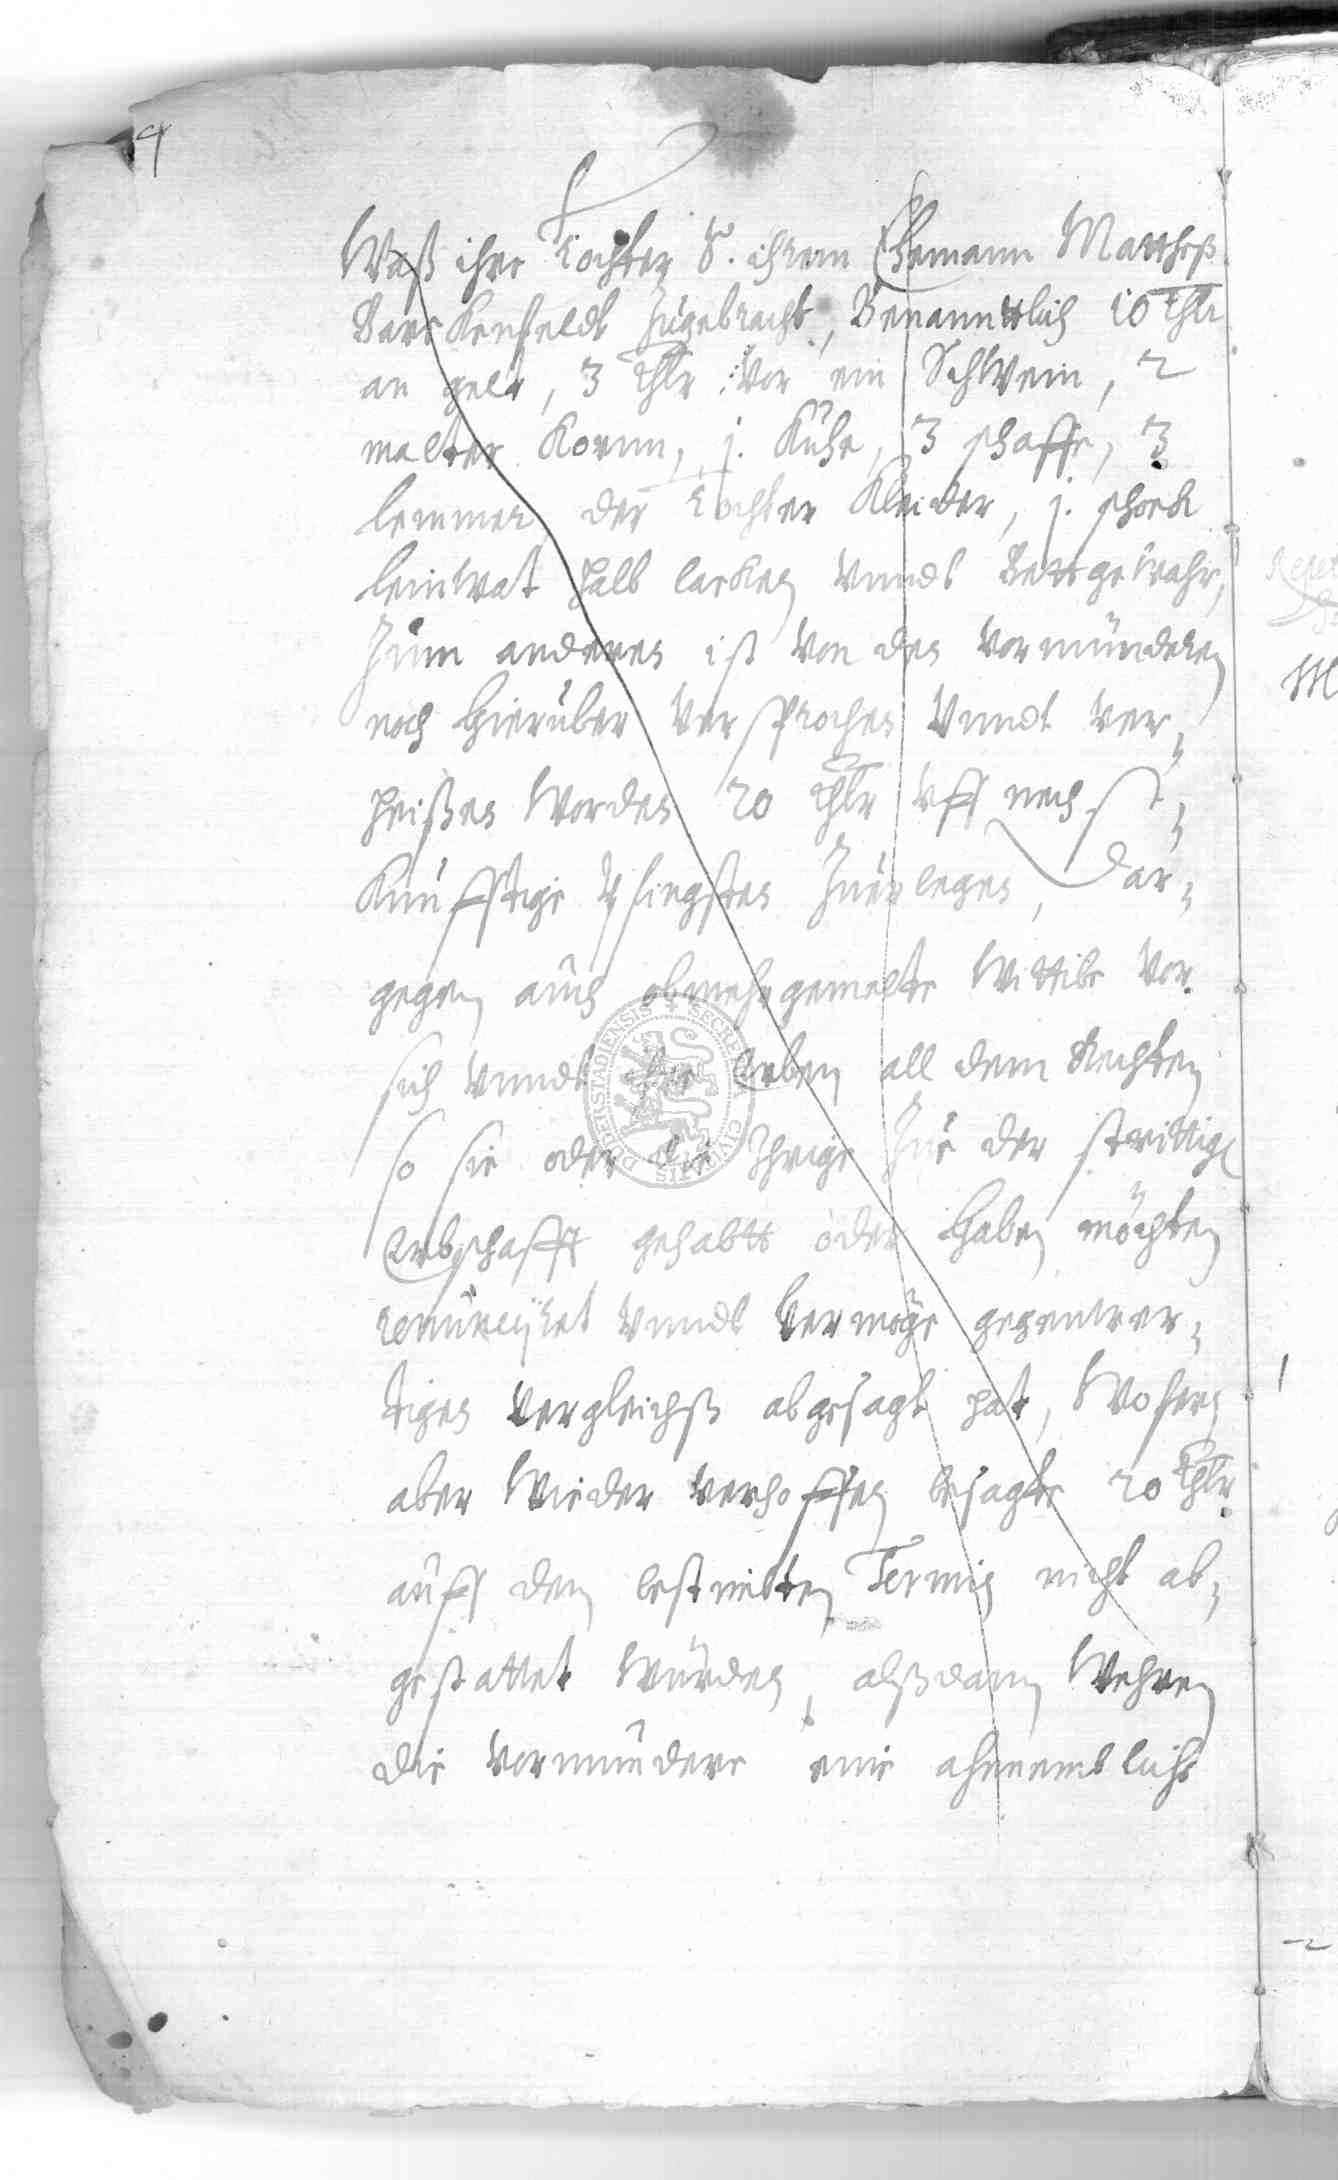 4
Waß ihre tochter S. ihrem Ehemann Mattheß
Barckenfeldt Zugebracht, Benanntlich 10 thlr
an gelt, 3 thlr vor ein Schwein, 2
malter Kornn, j. Kuhe, 3 schaffe, 3
lemmer, der tochter Kleider, j. schock
leinwat halb lacken vnndt bettgewahr,
Zum anderen ist von den vormünderen
noch hierüber versprochen vnndt ver¬
heißen worden 20 thlr vff nechst¬
Künfftige Pfingsten Zuerlegen, dar¬
gegen auch obmehrgemelte Wittibe vor
sich vnndt die Erben all dem Rechten
so sie oder die Ihrige Zue der strittige
Erbschafft gehabtt oder haben möchten
renuncijret vnndt vermöge gegenwer¬
tigen vergleichß abgesagt hat, Wofern
aber wieder verhoffen besagte 20 thlr
auff den bestimbten Termin nicht ab¬
gestattet würden, alßdann wehren
die vormündere eine ahnnembliche
SECRET CIVITATIS DUDERSTADIENSIS